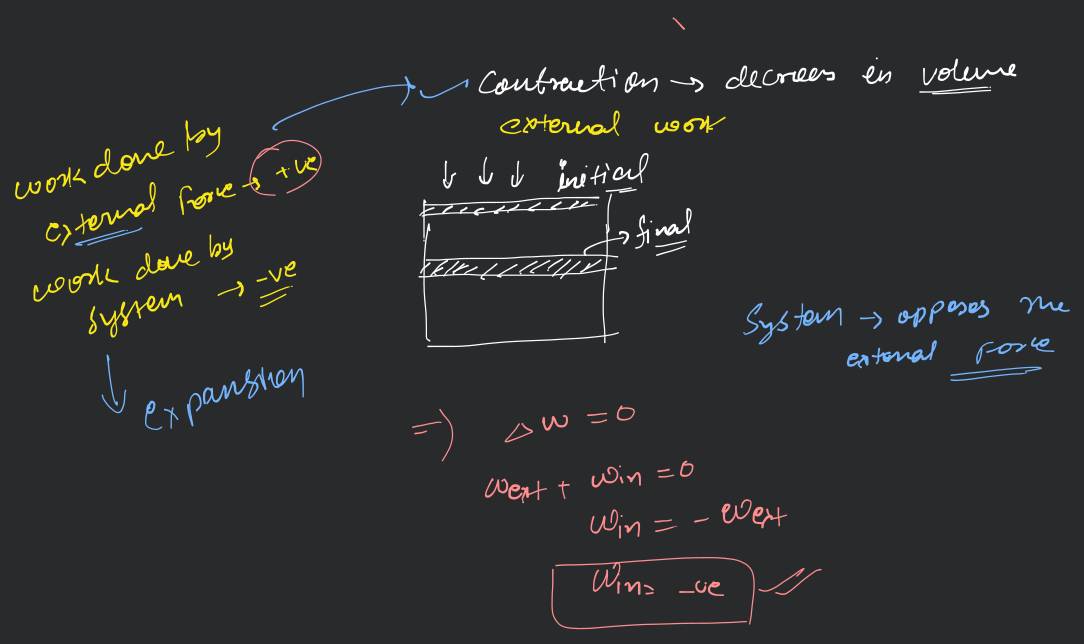 Contraction → decrees in volume
external work
work done by
external Force → +ve
work done by
system → -ve
expansion
initial
final
System → opposes the
external Force
=) △w = 0
wext + win = 0
win = - wext
win = -ve